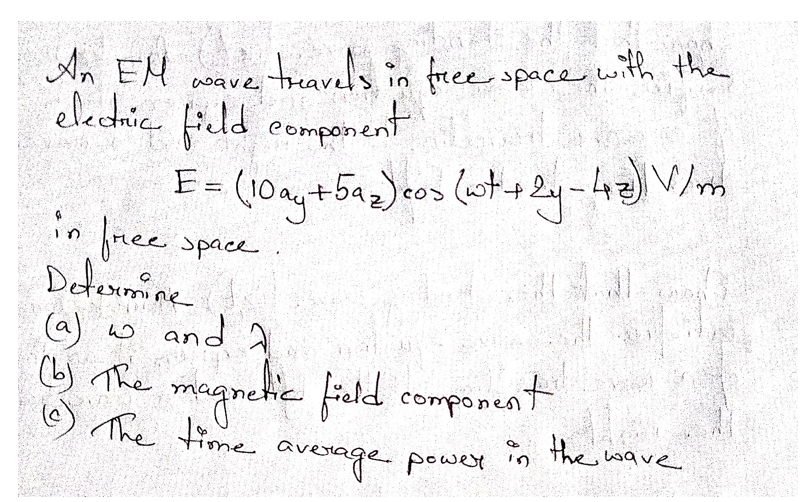 An EM wave travels in free space with the
electric field component
E = (10ay+5az) cos (ωt+2y-4z) V/m
in free space.
Determine
(a) ω and λ
(b) The magnetic field component
(c) The time average power in the wave